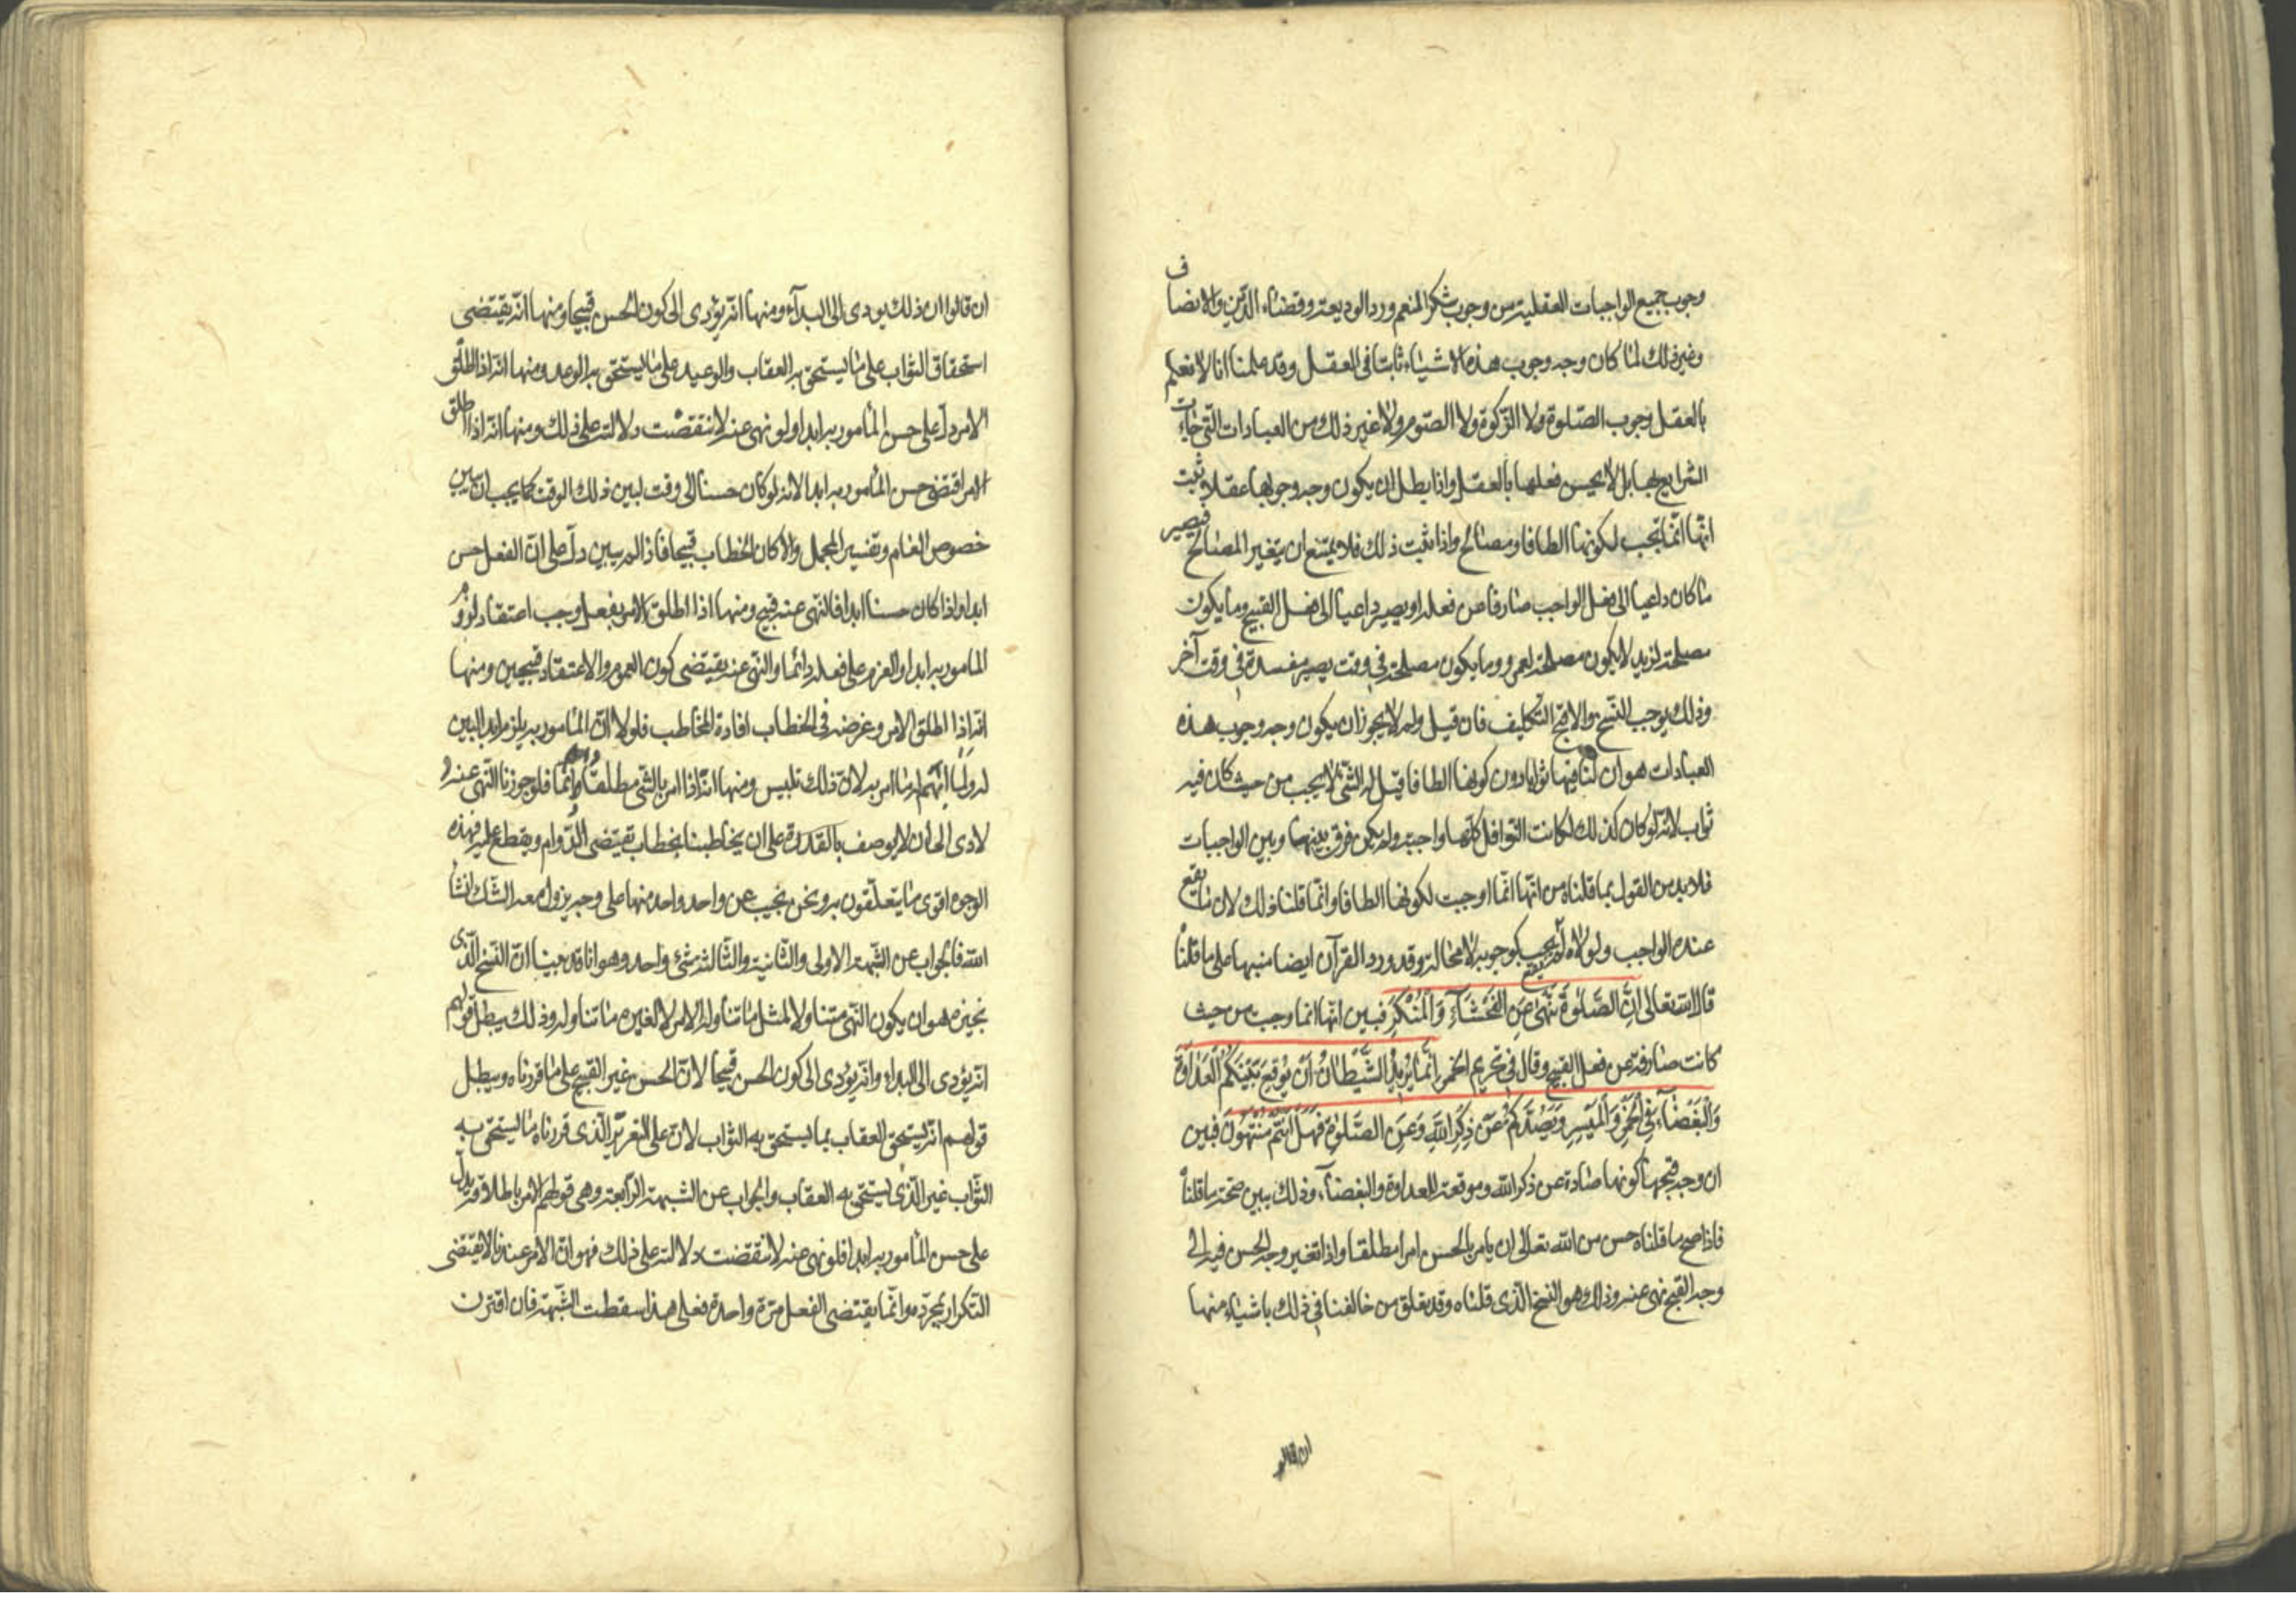 وجوب جميع الواجبات العقلية من وجوب شكر المنعم ورد الوديعة وقضاء الدين والانصاف
وغير ذلك لما كان وجه وجوب هذه الاشياء ثابتا فى العقل وقد علمنا انا لا نعلم
بالعقل وجوب الصلوة ولا الزكوة ولا الصوم ولا غير ذلك من العبادات التى جاءت
الشرايع بها بل لا يحسن فعلها بالعقل واذا بطل ان يكون وجه وجوبها عقلا ثبت
انها انما تجب لكونها الطافا ومصالح واذا ثبت ذلك فلا يمتنع ان يتغير المصالح فيصير
ما كان داعيا الى فعل الواجب صارفا عن فعله او يصير داعيا الى فعل القبيح وما يكون
مصلحة لزيد لا يكون مصلحة لعمرو وما يكون مصلحة فى وقت يصير مفسدة فى وقت آخر
وذلك يوجب النسخ والا قبح التكليف فان قيل ولم لا يجوز ان يكون وجه وجوب هذه
العبادات هو ان لنا فيها ثوابا دون كونها الطافا قيل له الشئ لا يجب من حيث كان فيه
ثواب لانه لو كان كذلك لكانت النوافل كلها واجبة ولم يكن فرق بينها وبين الواجبات
فلا بد من القول بما قلناه من انها انما اوجبت لكونها الطافا وانما قلنا ذلك لان ما يقع
عنده الواجب ولولاه لم يقع يجب كوجوبه لا محالة وقد ورد القرآن ايضا منبها على ما قلناه
قال الله تعالى اِنَّ الصَّلٰوةَ تَنْهىٰ عَنِ الْفَحْشَآءِ وَالْمُنْكَرِ فبين انها انما وجبت من حيث
كانت صارفة عن فعل القبيح وقال فى تحريم الخمر اِنَّمَا يُرِيدُ الشَّيْطَانُ اَنْ يُوقِعَ بَيْنَكُمُ الْعَدَاوَةَ
وَالْبَغْضَآءَ فِى الْخَمْرِ وَالْمَيْسِرِ وَيَصُدَّكُمْ عَنْ ذِكْرِ اللّٰهِ وَعَنِ الصَّلٰوةِ فَهَلْ اَنْتُمْ مُنْتَهُونَ فبين
ان وجه قبحها كونها صادة عن ذكر الله وموقعة للعداوة والبغضاء وذلك يبين صحة ما قلناه
فاذا صح ما قلناه حسن من الله تعالى ان يامر بالحسن امرا مطلقا واذا تغير وجه الحسن فيه الى
وجه القبح نهى عنه وذلك هو النسخ الذى قلناه وقد تعلق من خالفنا فى ذلك باشياء منها
ان قالوا
ان قالوا ان ذلك يودى الى البدآء ومنها انه يؤدى الى كون الحسن قبيحا ومنها انه يقتضى
استحقاق الثواب على ما يستحق به العقاب والوعيد على ما يستحق به الوعد ومنها انه اذا اطلق
الامر دل على حسن المأمور به ابدا ولو نهى عنه لانتقضت دلالته على ذلك ومنها انه اذا اطلق
الامر اقتضى حسن المأمور به ابدا لانه لو كان حسنا الى وقت لبين ذلك الوقت كما يجب ان يبين
خصوص العام وتفسير المجمل والا كان الخطاب قبيحا فاذا لم يبين دل على ان الفعل حسن
ابدا واذا كان حسنا ابدا فالنهى عنه قبيح ومنها اذا اطلق الامر بفعل وجب اعتقاد لزوم
المامور به ابدا والعزم على فعله دائما والنهى عنه يقتضى كون العزم والاعتقاد قبيحين ومنها
انه اذا اطلق الامر وغرضه فى الخطاب افادة المخاطب فلولا ان المأمور به يلزم ابدا لبين
له ولما ابهم امر ما امر به لان ذلك تلبيس ومنها انه اذا امر بالشئ مطلقا دائما فلو جوزنا النهى عنه
لادى الى ان لا يوصف بالقدرة على ان يخاطبنا بخطاب يقتضى الدوام ويقطع عليه فهذه
الوجوه اقوى ما يتعلقون به ونحن نجيب عن واحد واحد منها على وجه يزول معه الشك انشاء
الله فالجواب عن الشبهة الاولى والثانية والثالثة شئ واحد وهو انا قد بينا ان النسخ الذى
نجيزه هو ان يكون النهى متناولا لمثل ما تناوله الامر لا لغير ما تناوله وذلك يبطل قولهم
انه يؤدى الى البداء وانه يؤدى الى كون الحسن قبيحا لان الحسن غير القبيح على ما قررناه ويبطل
قولهم انه يستحق العقاب بما يستحق به الثواب لان على التقرير الذى قررناه ما يستحق به
الثواب غير الذى يستحق به العقاب والجواب عن الشبهة الرابعة وهى قولهم الامر باطلاقه يدل
على حسن المأمور به ابدا فلو نهى عنه لانتقضت دلالته على ذلك فهو ان الامر عندنا لا يقتضى
التكرار بمجرده وانما يقتضى الفعل مرة واحدة فعلى هذا سقطت الشبهة فان اقترن